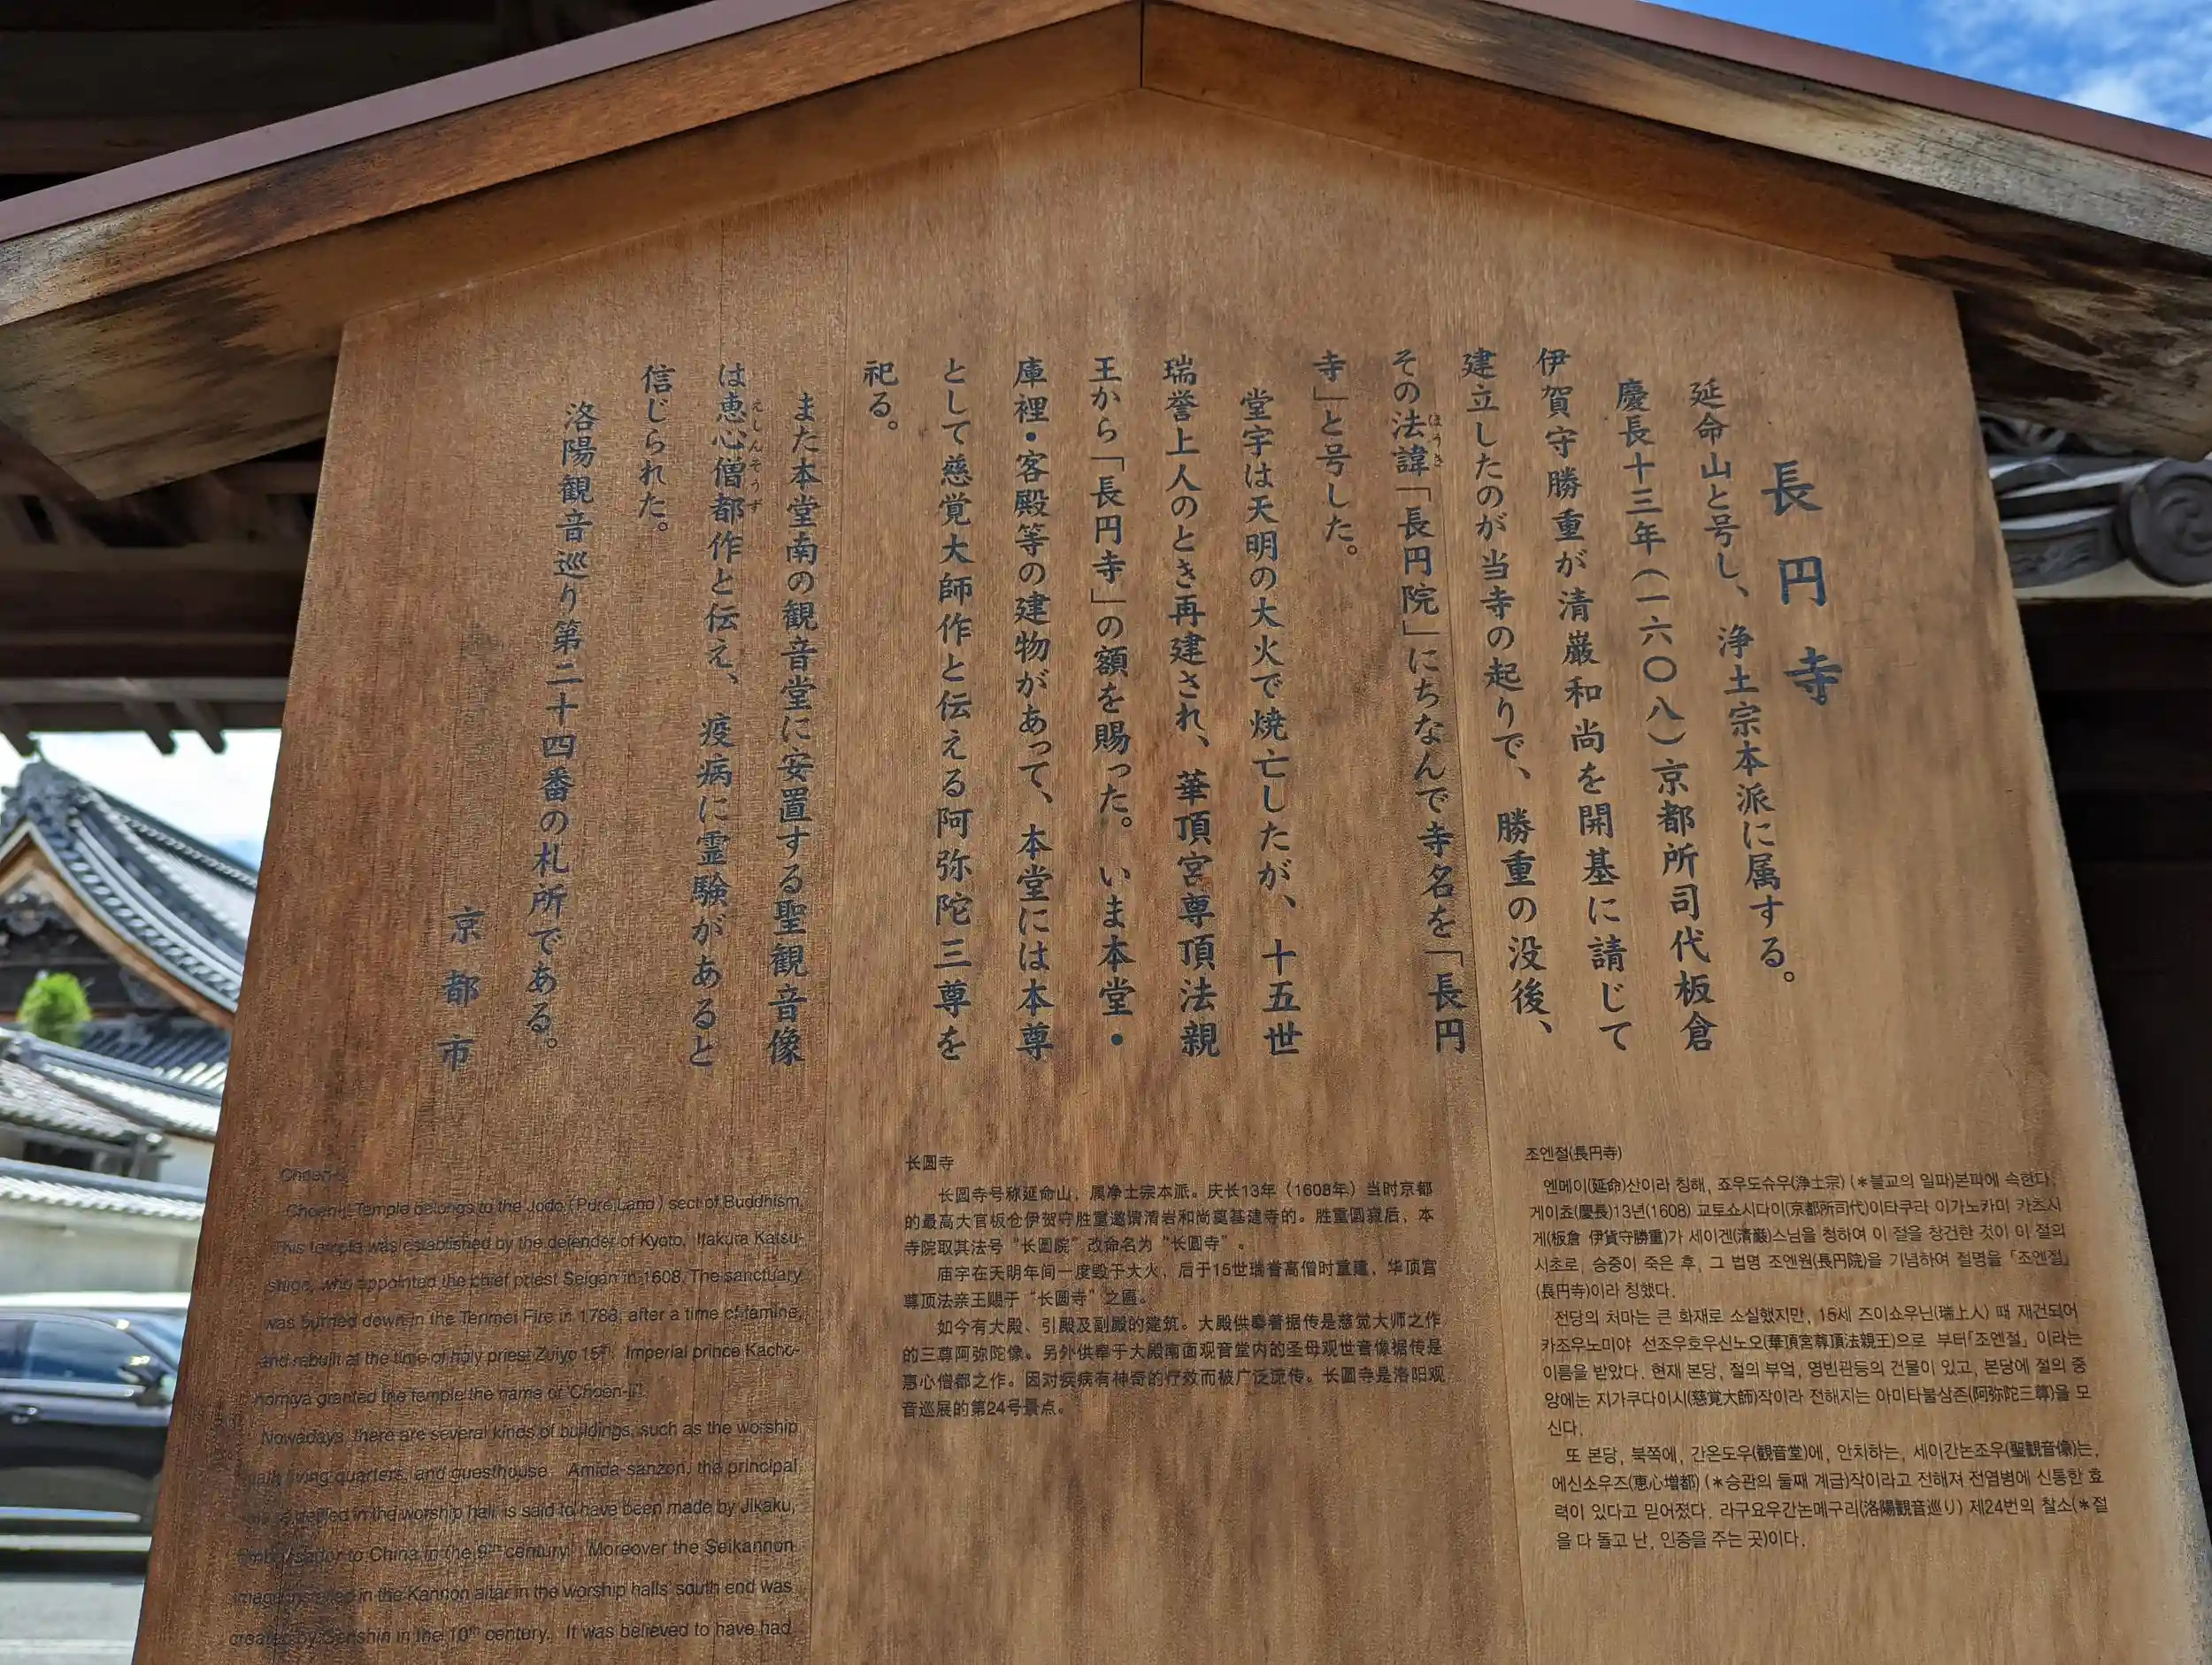 長円寺
延命山と号し、浄土宗本派に属する。
慶長十三年(一六〇八)京都所司代板倉
伊賀守勝重が清巌和尚を開基に請じて
建立したのが当寺の起りで、勝重の没後、
その法諱「長円院」にちなんで寺名を「長円
ほうき
寺」と号した。
堂宇は天明の大火で焼亡したが、十五世
瑞誉上人のとき再建され、華頂宮尊頂法親
王から「長円寺」の額を賜った。いま本堂・
庫裡・客殿等の建物があって、本堂には本尊
として慈覚大師作と伝える阿弥陀三尊を
祀る。
また本堂南の観音堂に安置する聖観音像
は恵心僧都作と伝え、疫病に霊験があると
えしんそうず
信じられた。
洛陽観音巡り第二十四番の札所である。
京都市
Choen-ji
Choen-ji Temple belongs to the Jodo (Pure Land) sect of Buddhism.
This temple was established by the defender of Kyoto, Itakura Katsu-
shige, who appointed the chief priest Seigan in 1608. The sanctuary
was burned down in the Tenmei Fire in 1788, after a time of famine,
and rebuilt at the time of holy priest Zuiyo 15th. Imperial prince Kacho-
nomiya granted the temple the name of "Choen-ji".
Nowadays, there are several kinds of buildings, such as the worship
hall, living quarters, and guesthouse. Amida-sanzon, the principal
in the worship hall, is said to have been made by Jikaku,
to China in the 9th century. Moreover the Seikannon
image in the Kannon altar in the worship halls' south end was
created by Genshin in the 10th century. It was believed to have had
长圆寺
长圆寺号称延命山，属净土宗本派。庆长13年（1608年）当时京都
的最高大官板仓伊贺守胜重邀请清岩和尚奠基建寺的。胜重圆寂后，本
寺院取其法号“长圆院”改命名为“长圆寺”。
庙宇在天明年间一度毁于大火，后于15世瑞誉高僧时重建，华顶宫
尊顶法亲王赐于“长圆寺”之匾。
如今有大殿、引殿及副殿的建筑。大殿供奉着据传是慈觉大师之作
的三尊阿弥陀像。另外供奉于大殿南面观音堂内的圣母观世音像据传是
惠心僧都之作。因对疾病有神奇的疗效而被广泛流传。长圆寺是洛阳观
音巡展的第24号景点。
조엔절(長円寺)
엔메이(延命)산이라 칭해, 죠우도슈우(浄土宗) (*불교의 일파)본파에 속한다.
게이쵸(慶長)13년(1608) 교토쇼시다이(京都所司代)이타쿠라 이가노카미 카츠시
게(板倉 伊賀守勝重)가 세이겐(清巌)스님을 청하여 이 절을 창건한 것이 이 절의
시초로, 승중이 죽은 후, 그 법명 조엔원(長円院)을 기념하여 절명을 「조엔절」
(長円寺)이라 칭했다.
전당의 처마는 큰 화재로 소실했지만, 15세 즈이쇼우닌(瑞上人) 때 재건되어
카조우노미야 선조우호우신노오(華頂宮尊頂法親王)으로 부터「조엔절」 이라는
이름을 받았다. 현재 본당, 절의 부엌, 영빈관등의 건물이 있고, 본당에 절의 중
앙에는 지가쿠다이시(慈覚大師)작이라 전해지는 아미타불삼존(阿弥陀三尊)을 모
신다.
또 본당, 북쪽에, 간온도우(観音堂)에, 안치하는, 세이간논조우(聖観音像)는,
에신소우즈(恵心増都) (*승관의 둘째 계급)작이라고 전해져 전염병에 신통한 효
력이 있다고 믿어졌다. 라구요우간논메구리(洛陽観音巡り) 제24번의 찰소(*절
을 다 돌고 난, 인증을 주는 곳)이다.